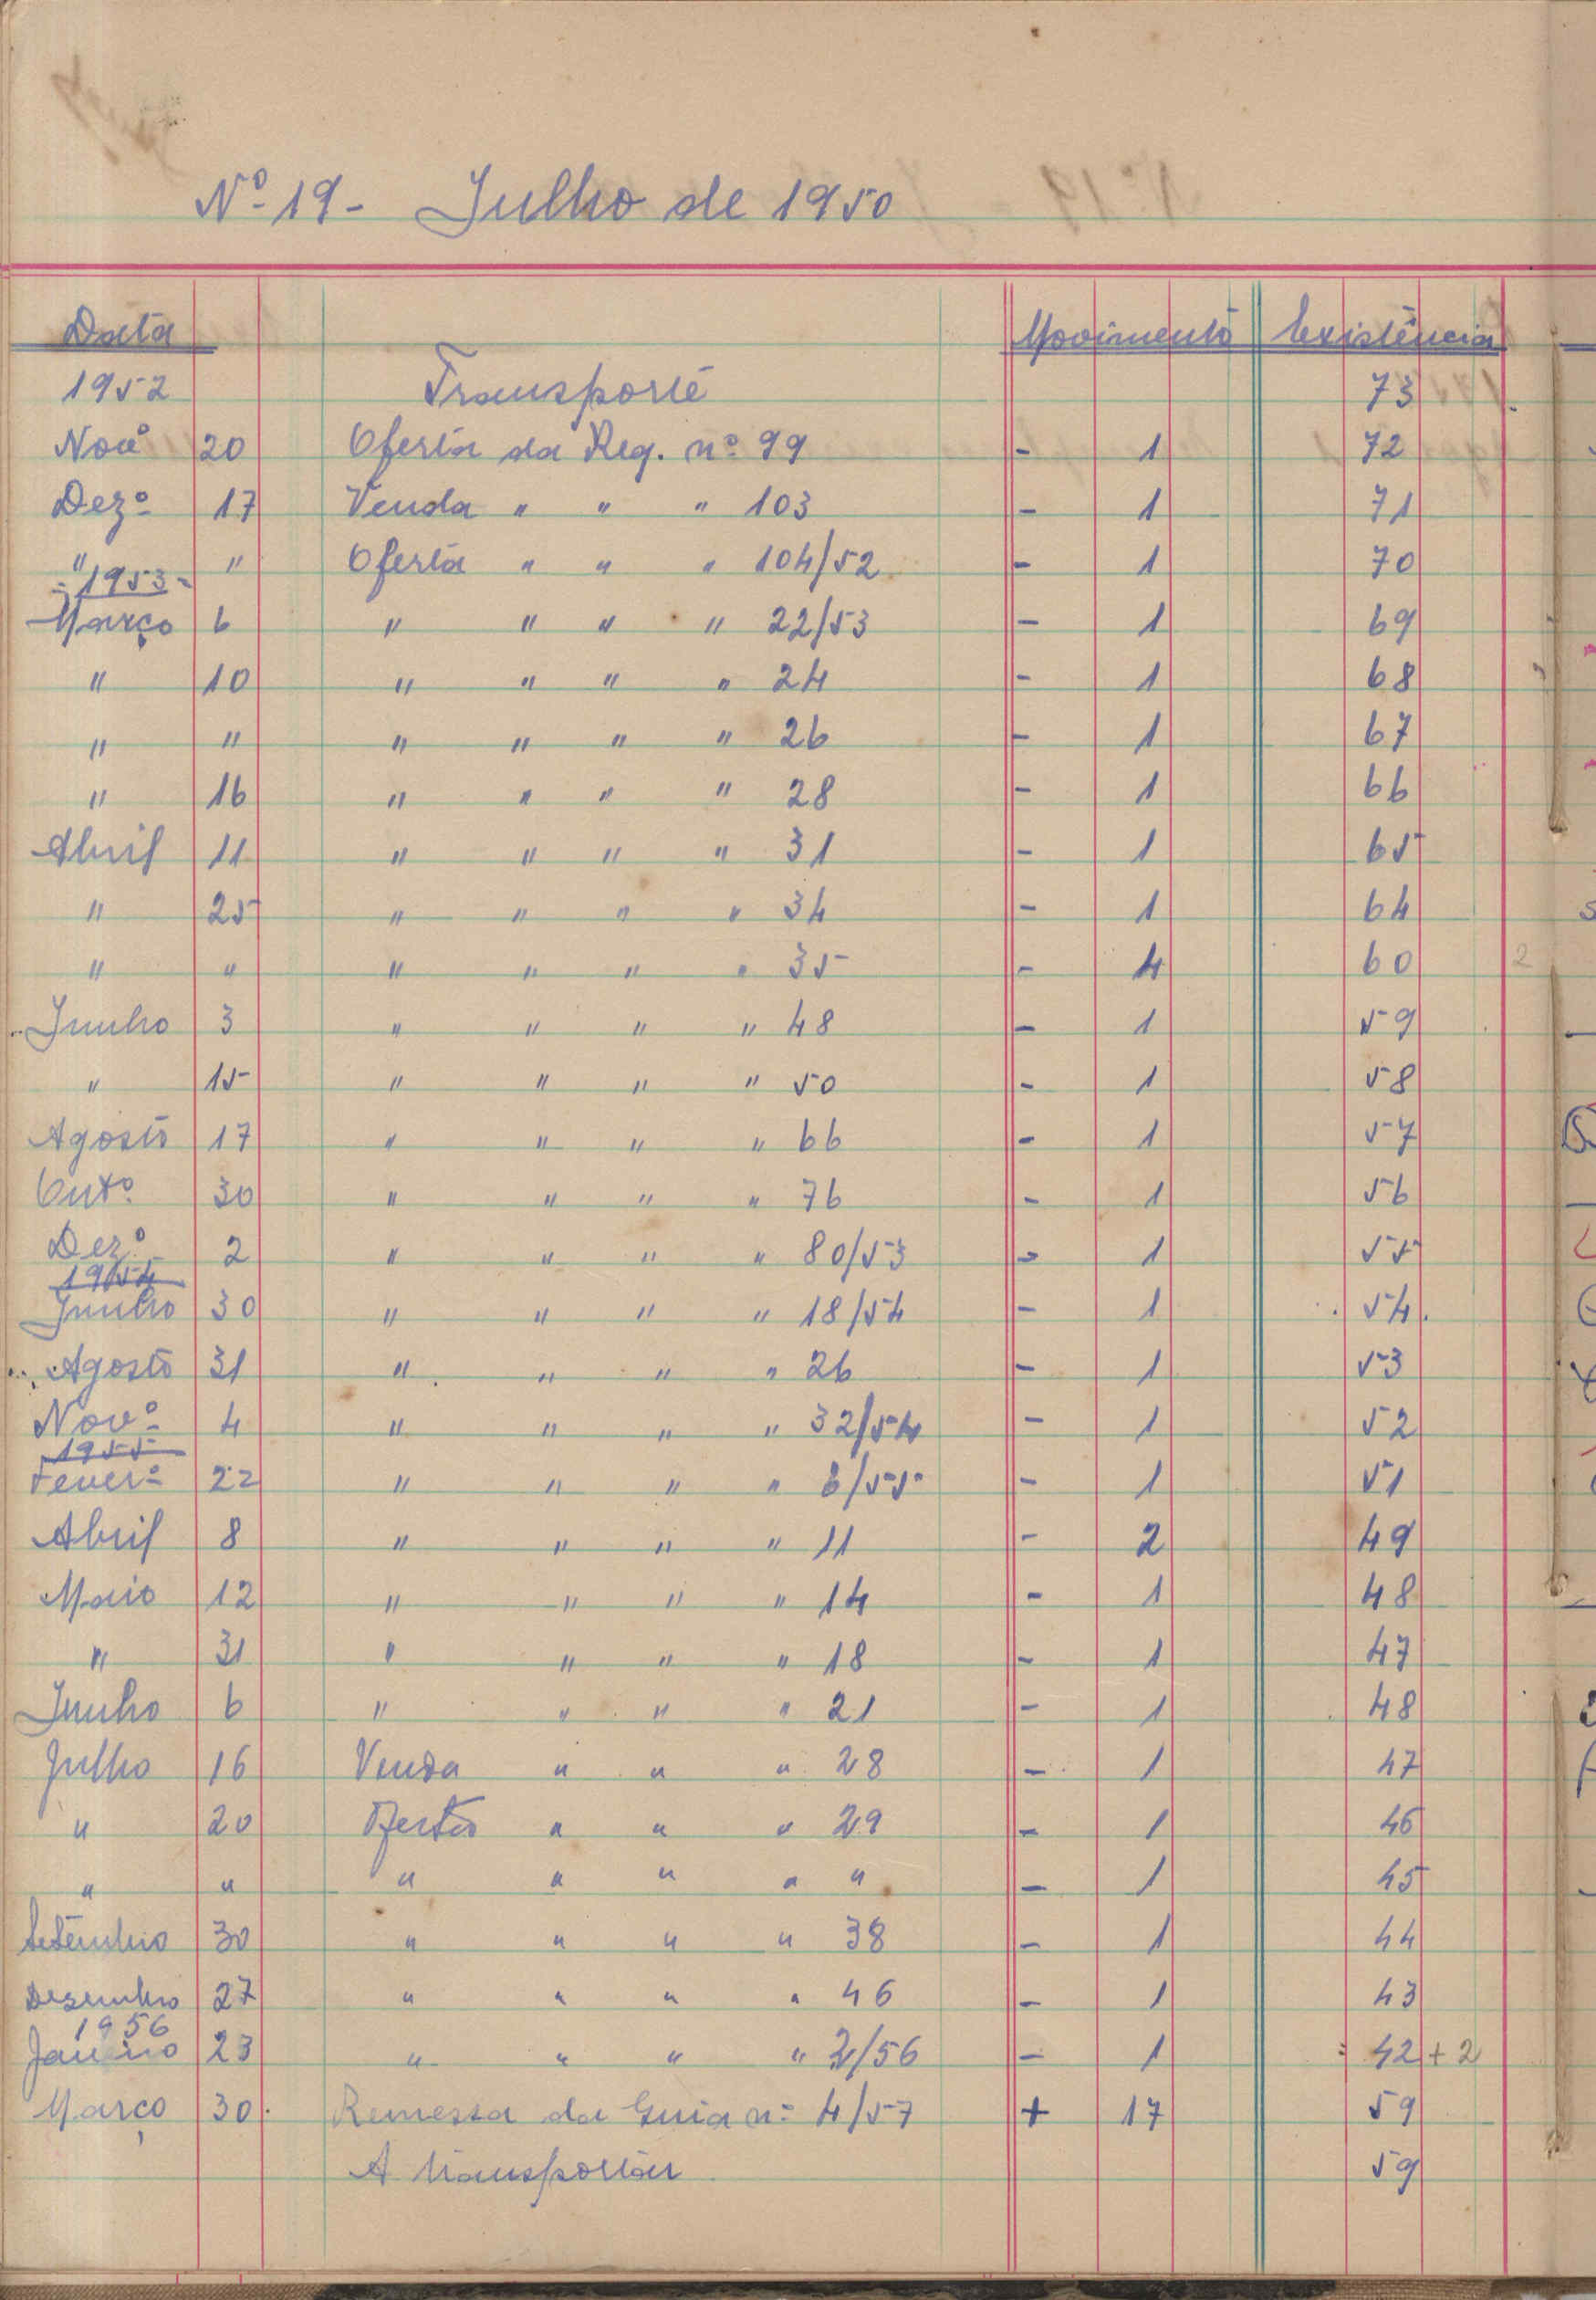 Nº 19 - Julho de 1950
Data Movimento Existência
1952 Transporte 73
Novº 20 Oferta da Reg. nº 99 - 1 72
Dezº 17 Venda " " " 103 - 1 71
" " Oferta " " " 104/52 - 1 70
- 1953 -
Março 6 " " " " 22/53 - 1 69
" 10 " " " " 24 - 1 68
" " " " " " 26 - 1 67
" 16 " " " " 28 - 1 66
Abril 11 " " " " 31 - 1 65
" 25 " " " " 34 - 1 64
" " " " " " 35 - 4 60 2
Junho 3 " " " " 48 - 1 59
" 15 " " " " 50 - 1 58
Agosto 17 " " " " 66 - 1 57
Outº 30 " " " " 76 - 1 56
Dezº 2 " " " " 80/53 - 1 55
1954
Junho 30 " " " " 18/54 - 1 54
Agosto 31 " " " " 26 - 1 53
Novº 4 " " " " 32/54 - 1 52
1955
Feverº 22 " " " " 6/55 - 1 51
Abril 8 " " " " 11 - 2 49
Maio 12 " " " " 14 - 1 48
" 31 " " " " 18 - 1 47
Junho 6 " " " " 21 - 1 48
Julho 16 Venda " " " 28 - 1 47
" 20 Oferta " " " 29 - 1 46
" " " " " " " - 1 45
Setembro 30 " " " " 38 - 1 44
Dezembro 27 " " " " 46 - 1 43
1956
Janeiro 23 " " " " 2/56 - 1 42 + 2
Março 30 Remessa da Guia nº 4/57 + 17 59
A transportar 59